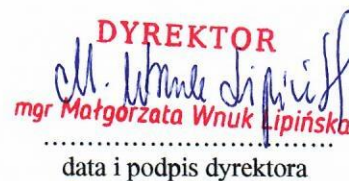 DYREKTOR
M. Wnuk Lipińska
mgr Małgorzata Wnuk Lipińska
........................................
data i podpis dyrektora